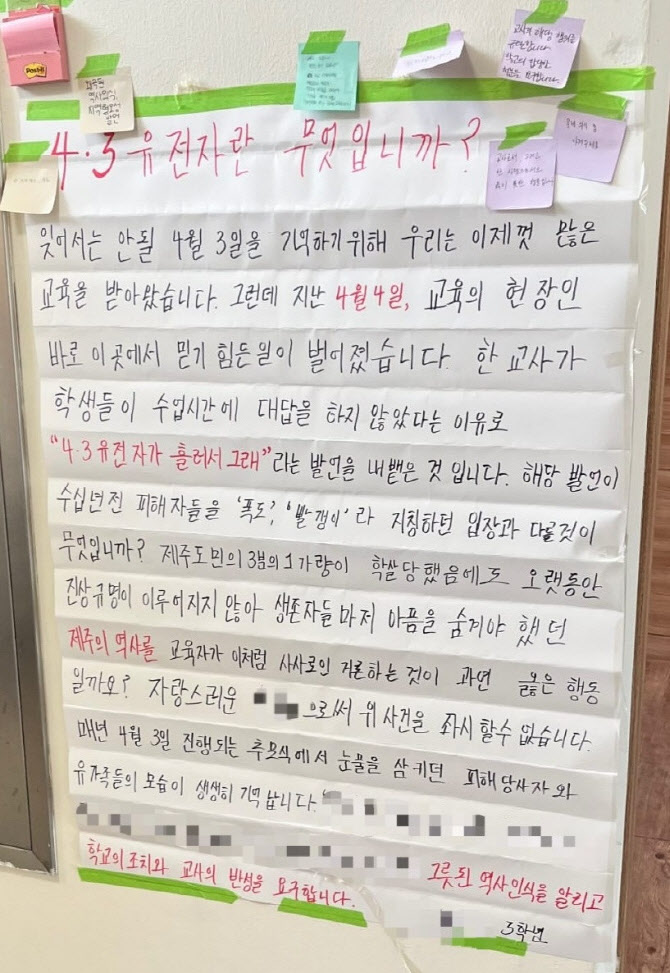 Post-it
4·3유전자란 무엇입니까?
잊어서는 안될 4월 3일을 기억하기위해 우리는 이제껏 많은
교육을 받아왔습니다. 그런데 지난 4월4일, 교육의 현장인
바로 이곳에서 믿기 힘든일이 벌어졌습니다. 한 교사가
학생들이 수업시간에 대답을 하지 않았다는 이유로
"4·3유전자가 흘러서 그래"라는 발언을 내뱉은 것 입니다. 해당 발언이
수십년전 피해자들을 '폭도', '빨갱이'라 지칭하던 입장과 다를것이
무엇입니까? 제주도민의 3분의 1가량이 학살당했음에도 오랫동안
진상규명이 이루어지지 않아 생존자들마저 아픔을 숨겨야 했던
제주의 역사를 교육자가 이처럼 사사로이 거론하는 것이 과연 옳은 행동
일까요? 자랑스러운 으로써 위 사건을 좌시 할수 없습니다.
매년 4월 3일 진행되는 추모식에서 눈물을 삼키던 피해당사자와
유가족들의 모습이 생생히 기억 납니다.
그릇된 역사인식을 알리고
학교의 조치와 교사의 반성을 요구합니다.
3학년